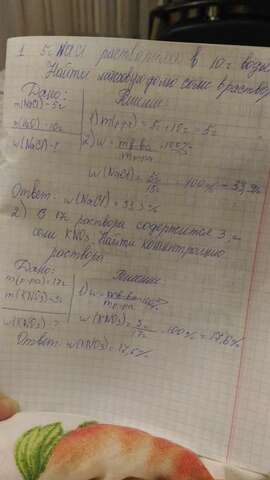 1. 5г NaCl растворили в 10г воды
Найти массовую долю соли в растворе
Дано: Решение:
m(NaCl)=5г
1) m р-ра =
m(H₂O)=10г
w(NaCl)-?
2) w = m в-ва 100%
m р-ра
w(NaCl) = 5г · 100% = 33,3%
15г
Ответ: w(NaCl) = 33,3%
2) В 17г раствора содержится 3г
соли KNO₃. Найти концентрацию
раствора
Дано: Решение
m(р-ра)=17г
m(KNO₃)=3г
1) w = m в-ва · 100%
m р-ра
w(KNO₃)-?
w(KNO₃) = 3г · 100% = 17,6%
17г
Ответ: w(KNO₃) = 17,6%